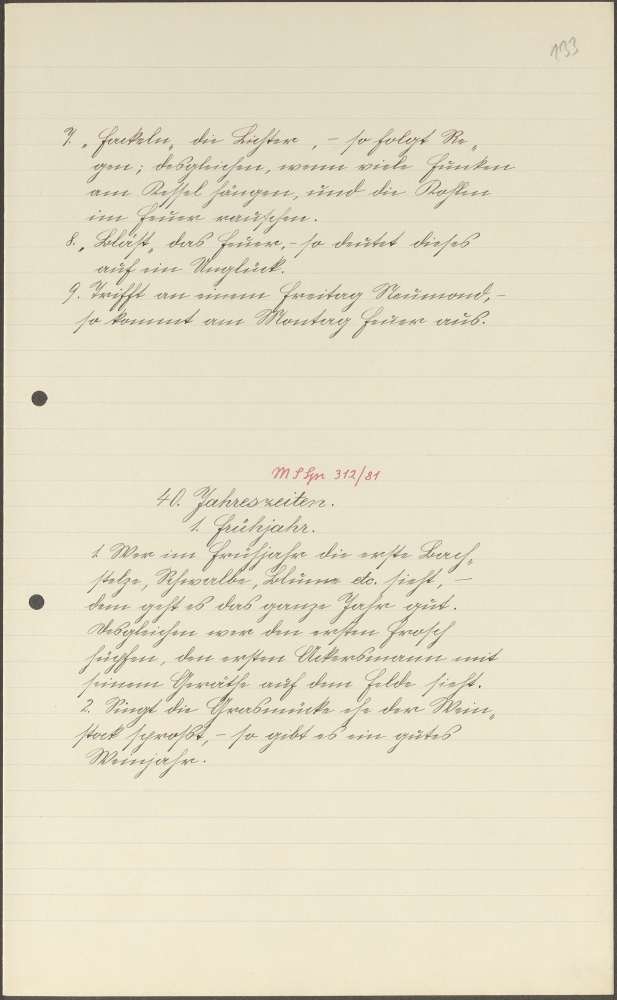 133
7. „Fackeln„ die Lichter, – so folgt Re„
gen; desgleichen, wenn viele Funken
am Kessel hängen, und die Kohlen
im Feuer rauschen.
8. „Bläst„ das Feuer, – so deutet dieses
auf ein Unglück.
9. Trifft an einem Freitag Neumond, –
so kommt am Montag Feuer aus.
MSSgn 312/81
40. Jahreszeiten.
1. Frühjahr.
1. Wer im Frühjahr die erste Bach„
stelze, Schwalbe, Blume etc. sieht, –
dem geht es das ganze Jahr gut.
Desgleichen wer den ersten Frosch
hüpfen, den ersten Ackersmann mit
seinem Geräthe auf dem Felde sieht.
2. Singt die Grasmücke ehe der Wein„
stock sprosst, – so gibt es ein gutes
Weinjahr.